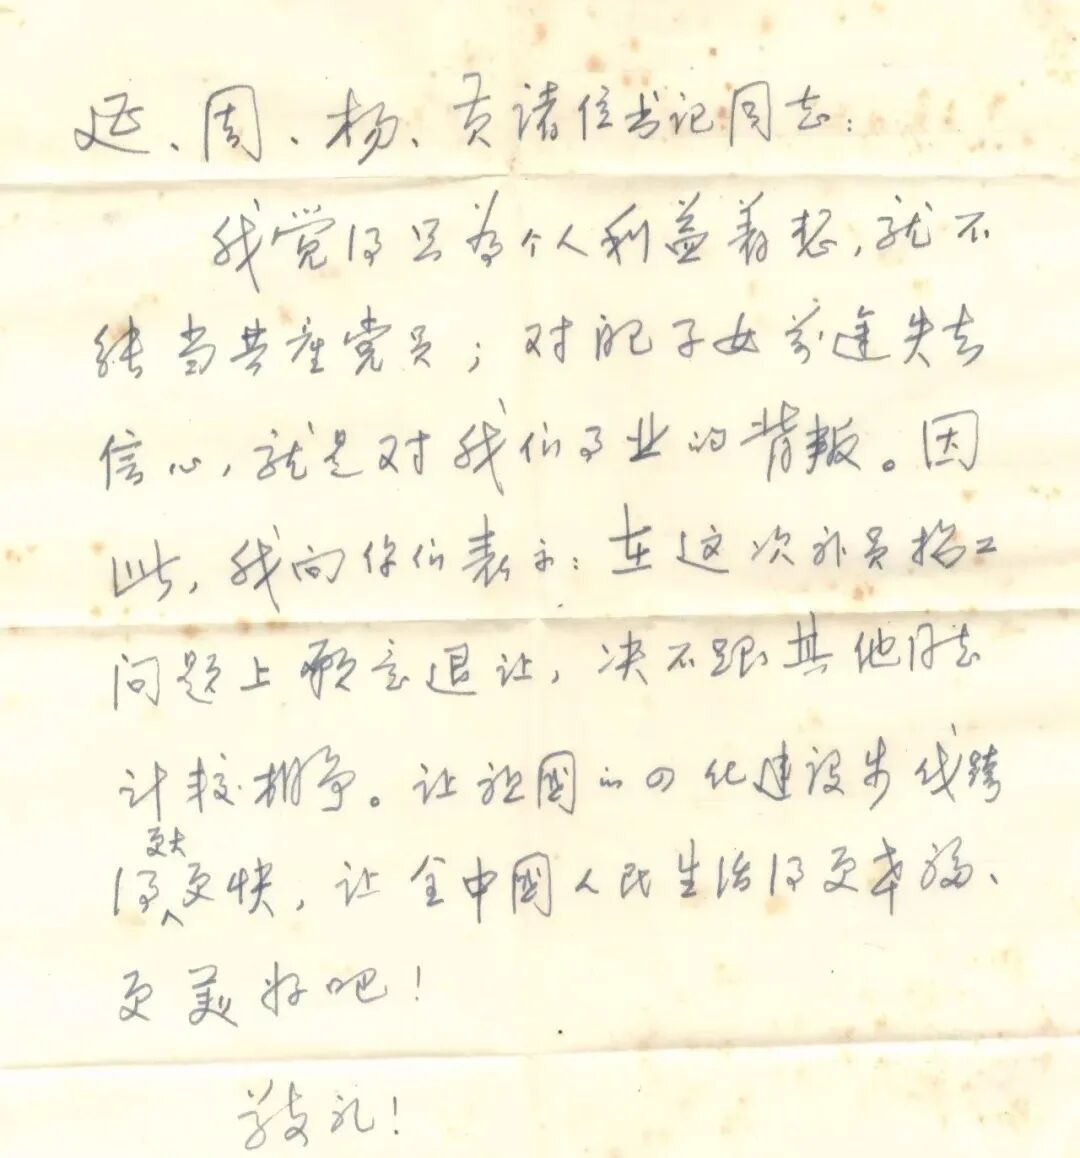 延、周、杨、黄诸位书记同志：
我觉得只为个人利益着想，就不
能当共产党员；对自己子女前途失去
信心，就是对我们事业的背叛。因
此，我向你们表示：在这次补员招工
问题上愿意退让，决不跟其他同志
计较相争。让祖国的四化建设步伐跨
得更大更快，让全中国人民生活得更幸福、
更美好吧！
敬礼！